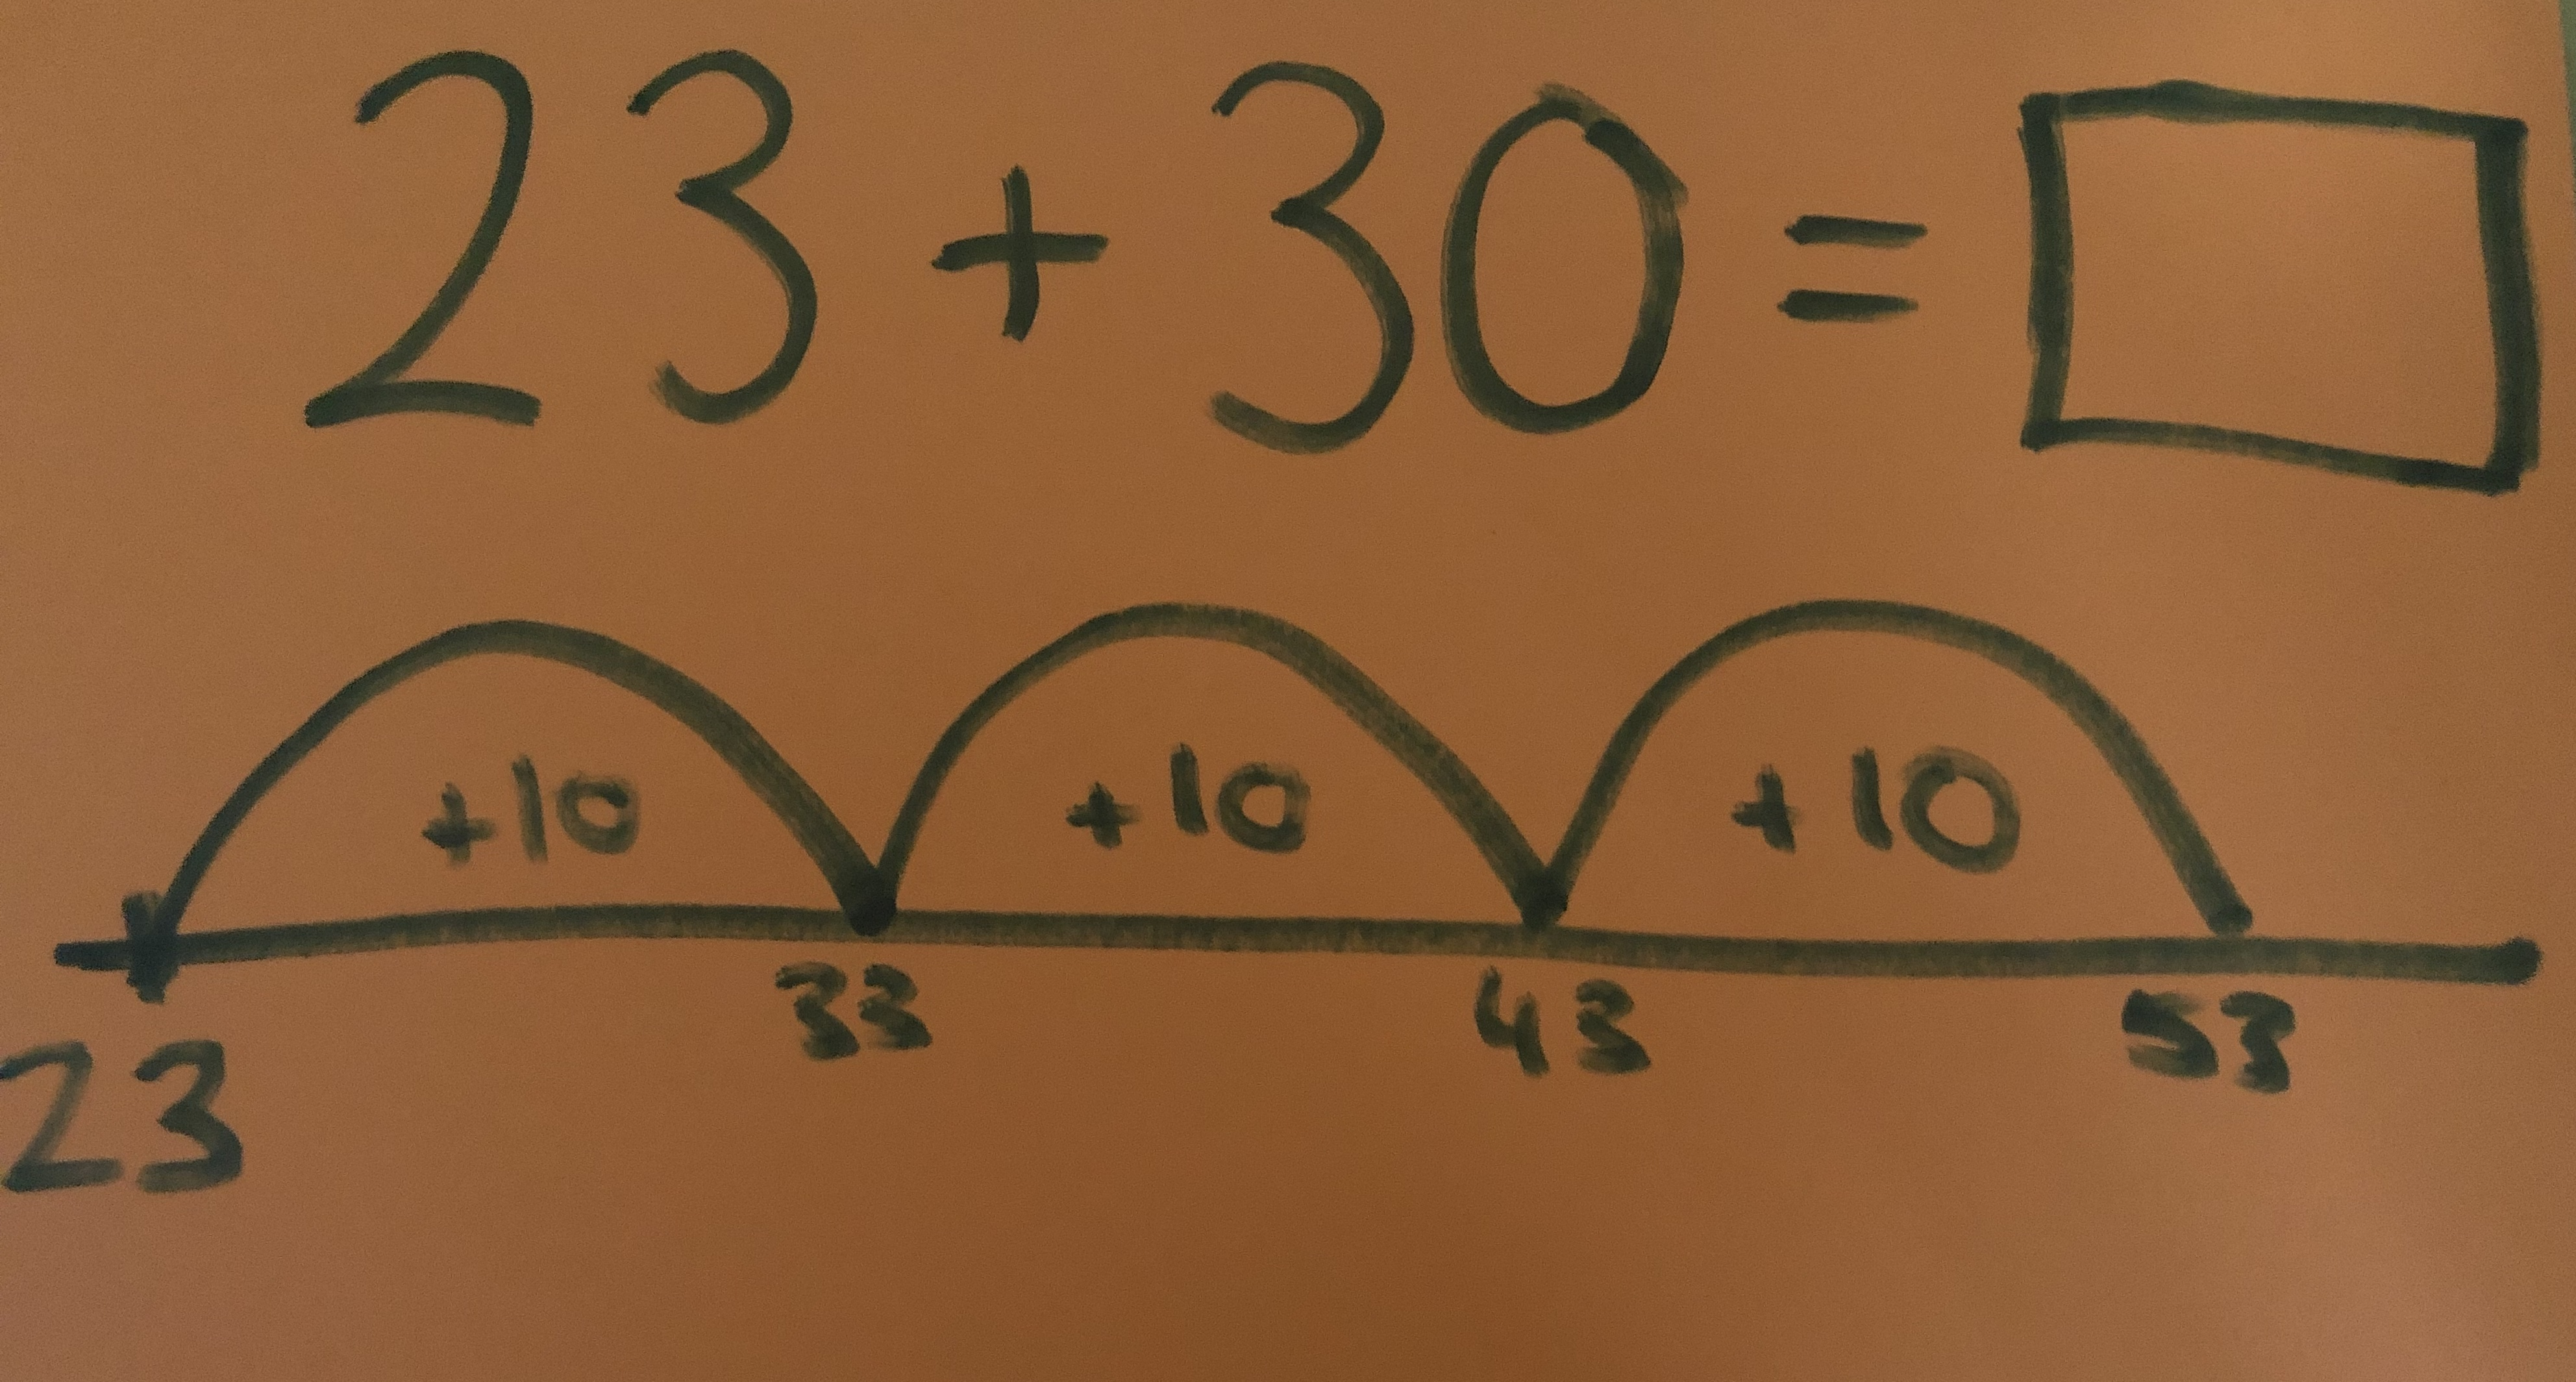 23 + 30 = □
+10 +10 +10
23 33 43 53